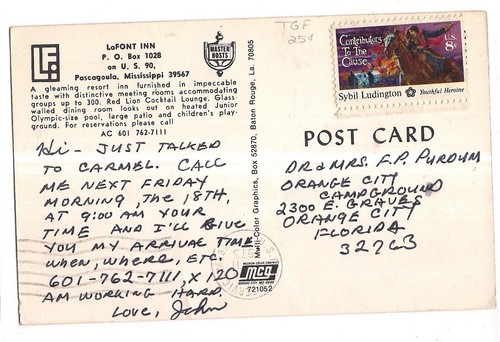 TGF
25¢
LaFONT INN
P. O. Box 1028
on U. S. 90,
Pascagoula, Mississippi 39567
MASTER HOSTS
A gleaming resort inn furnished in impeccable
taste with distinctive meeting rooms accommodating
groups up to 300. Red Lion Cocktail Lounge. Glass
walled dining room looks out on heated Junior
Olympic-size pool, large patio and children's play-
ground. For reservations please call
AC 601 762-7111
Hi - JUST TALKED
TO CARMEL. CALL
ME NEXT FRIDAY
MORNING, THE 18TH,
AT 9:00 AM YOUR
TIME AND I'LL GIVE
YOU MY ARRIVAL TIME
WHEN, WHERE, ETC.
601-762-7111, X 120
AM WORKING HARD.
LOVE, John
Multi-Color Graphics, Box 52870, Baton Rouge, La. 70805
mcg
721052
Contributors
To The
Cause...
U.S.
8¢
Sybil Ludington Youthful Heroine
POST CARD
DR & MRS. F.P. PURDUM
ORANGE CITY
CAMPGROUND
2300 E. GRAVES
ORANGE CITY
FLORIDA
32763